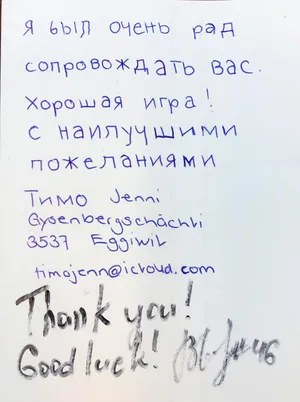 Я был очень рад
сопровождать вас.
Хорошая игра!
с наилучшими
пожеланиями
Тимо Jenni
Gysenbergschächli
3537 Eggiwil
timojenn@icloud.com
Thank you!
Good luck!